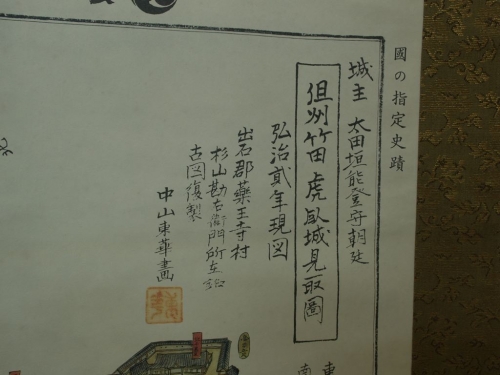 國の指定史蹟
城主 太田垣能登守朝延
但州竹田虎臥城見取圖
弘治貳年現図
出石郡藥王寺村
杉山勘右衛門所左
古図復製
中山東華畫
東
南